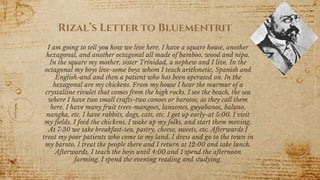 Rizal's Letter to Bluementrit
I am going to tell you how we live here. I have a square house, another
hexagonal, and another octagonal all made of bamboo, wood and nipa.
In the square my mother, sister Trinidad, a nephew and I live. In the
octagonal my boys live-some boys whom I teach arithmetic, Spanish and
English-and and then a patient who has been operated on. In the
hexagonal are my chickens. From my house I hear the murmur of a
crystalline rivulet that comes from the high rocks. I see the beach, the sea
where I have two small crafts-two canoes or barotos, as they call them
here. I have many fruit trees-mangoes, lanzones, guyabanos, baluno,
nangka, etc. I have rabbits, dogs, cats, etc. I get up early-at 5:00. I visit
my fields, I feed the chickens, I wake up my folks, and start them moving.
At 7:30 we take breakfast-tea, pastry, cheese, sweets, etc. Afterwards I
treat my poor patients who come to my land, I dress and go to the town in
my baroto, I treat the people there and I return at 12:00 and take lunch.
Afterwards, I teach the boys until 4:00 and I spend the afternoon
farming. I spend the evening reading and studying.